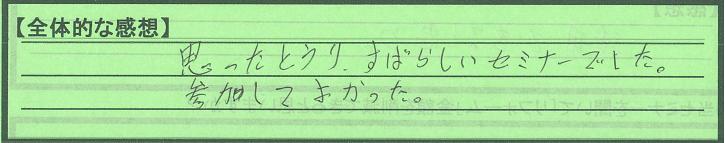 【全体的な感想】
思ったとうり、すばらしいセミナーでした。
参加してよかった。